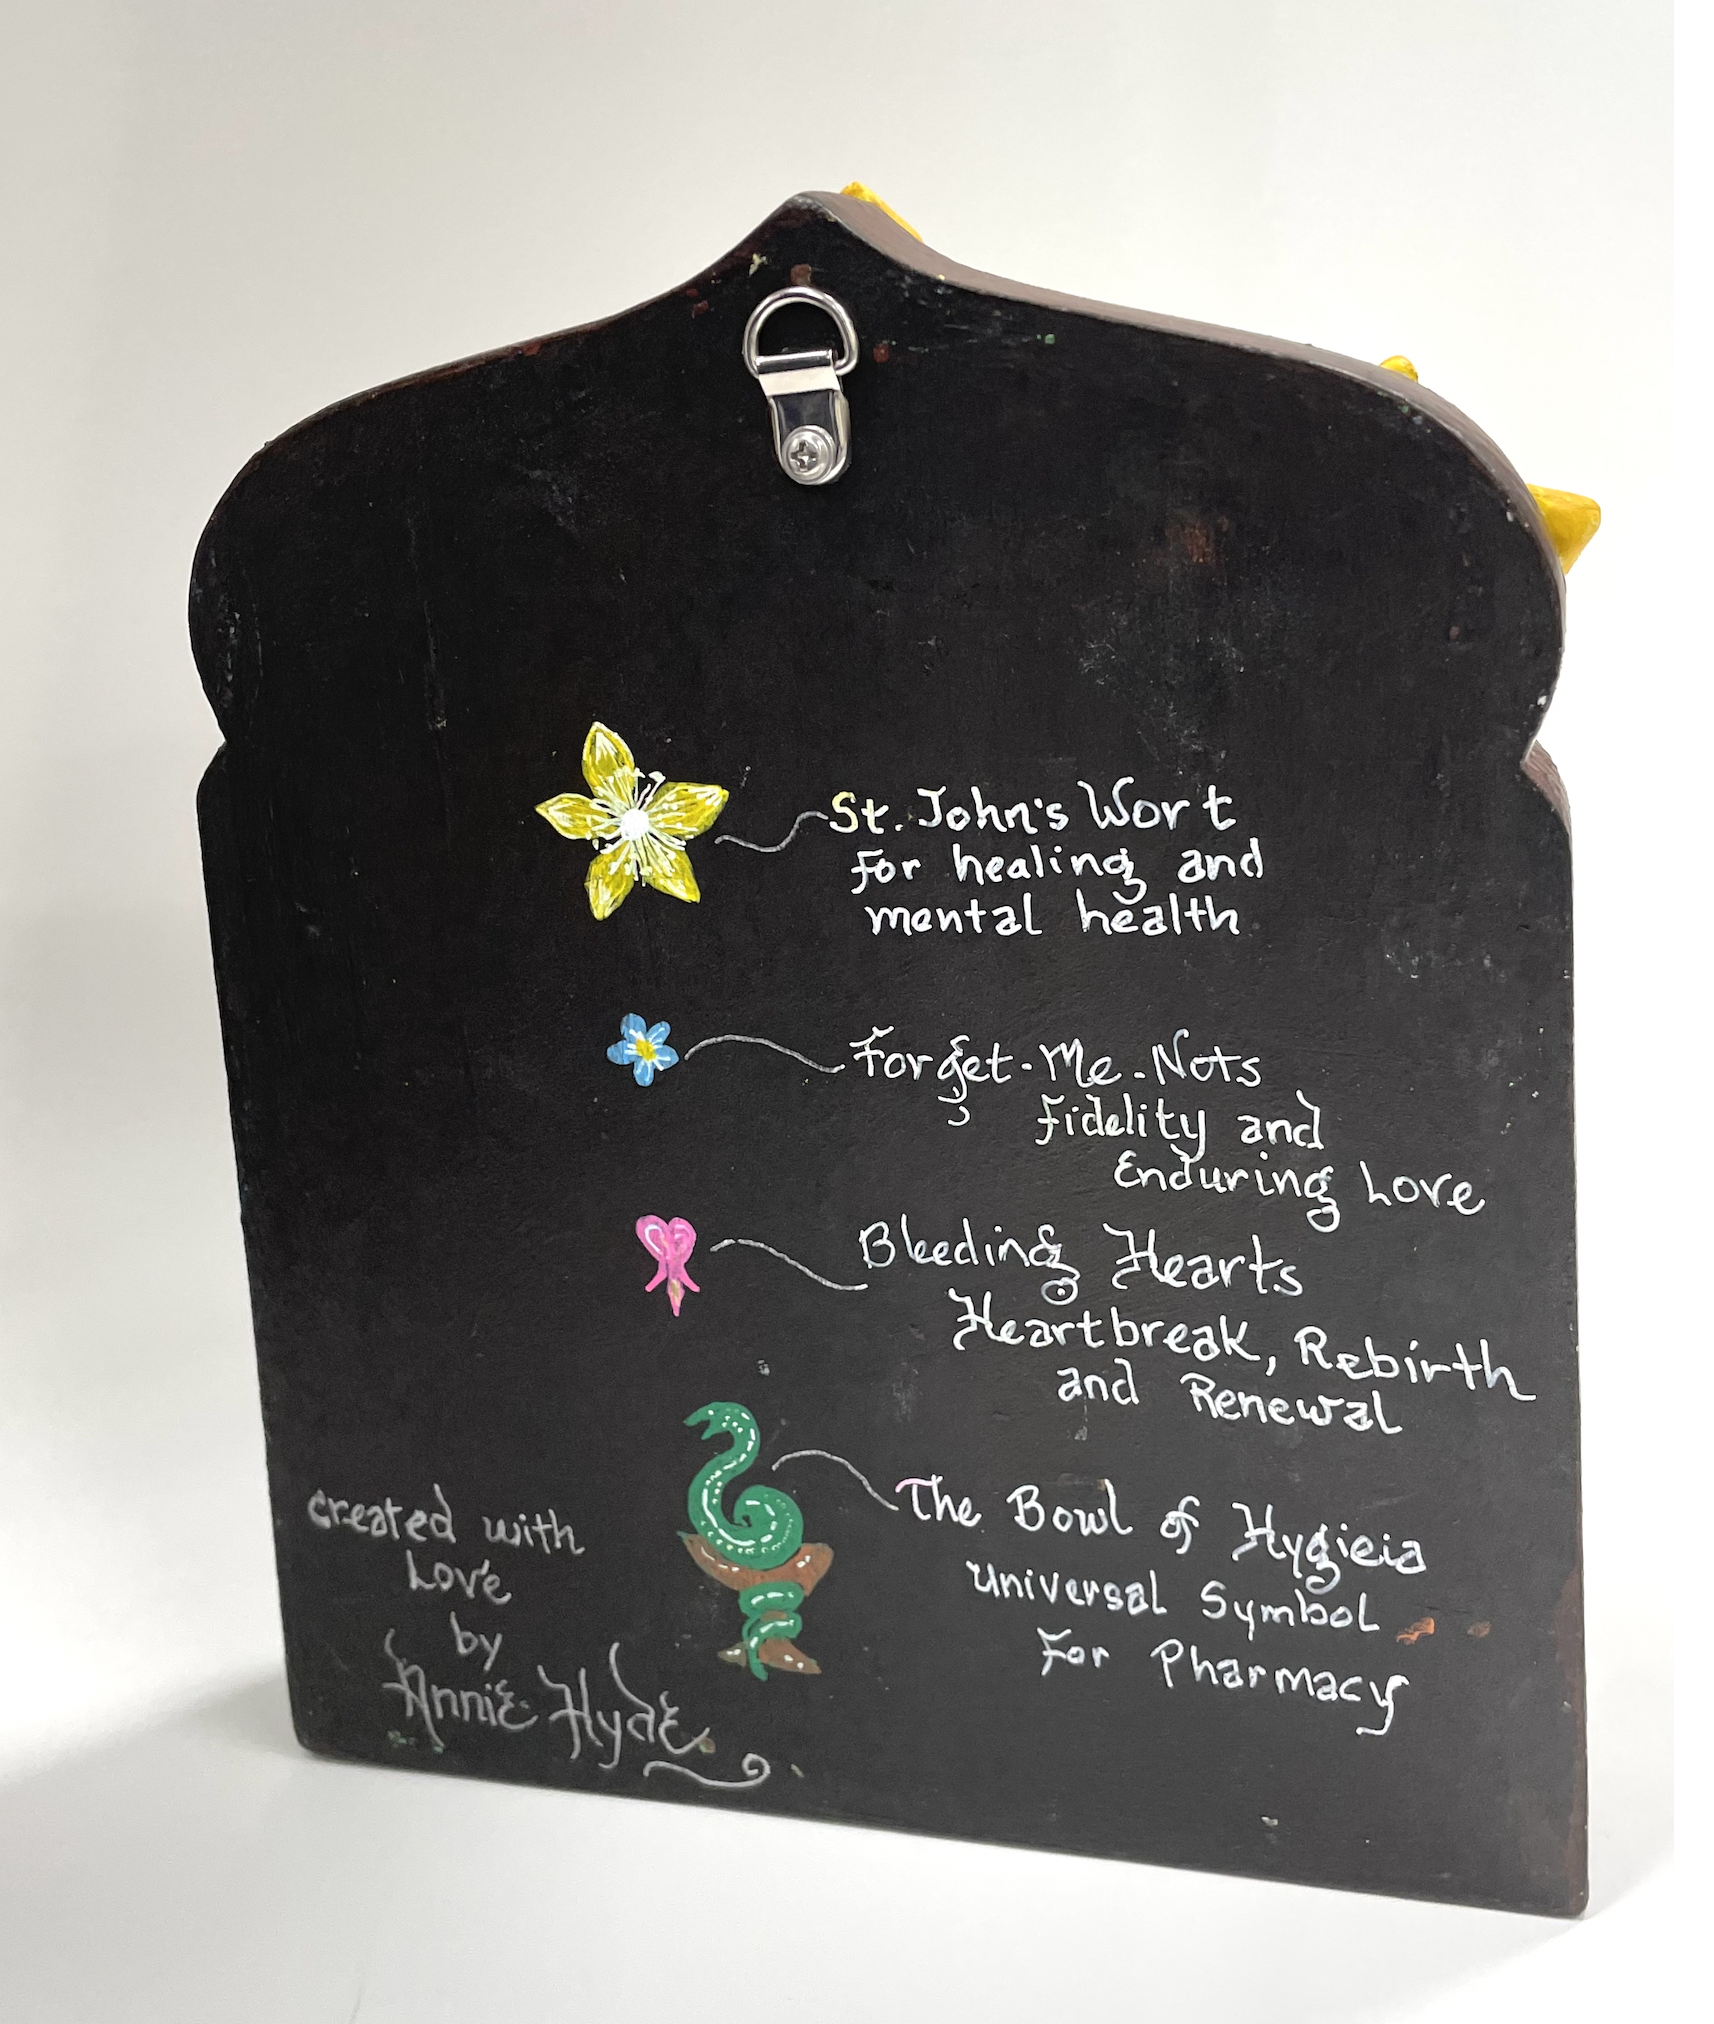 St. John's Wort
For healing and
mental health
Forget-Me-Nots
Fidelity and
Enduring Love
Bleeding Hearts
Heartbreak, Rebirth
and Renewal
The Bowl of Hygieia
Universal Symbol
For Pharmacy
created with
Love
by
Annie Hyde